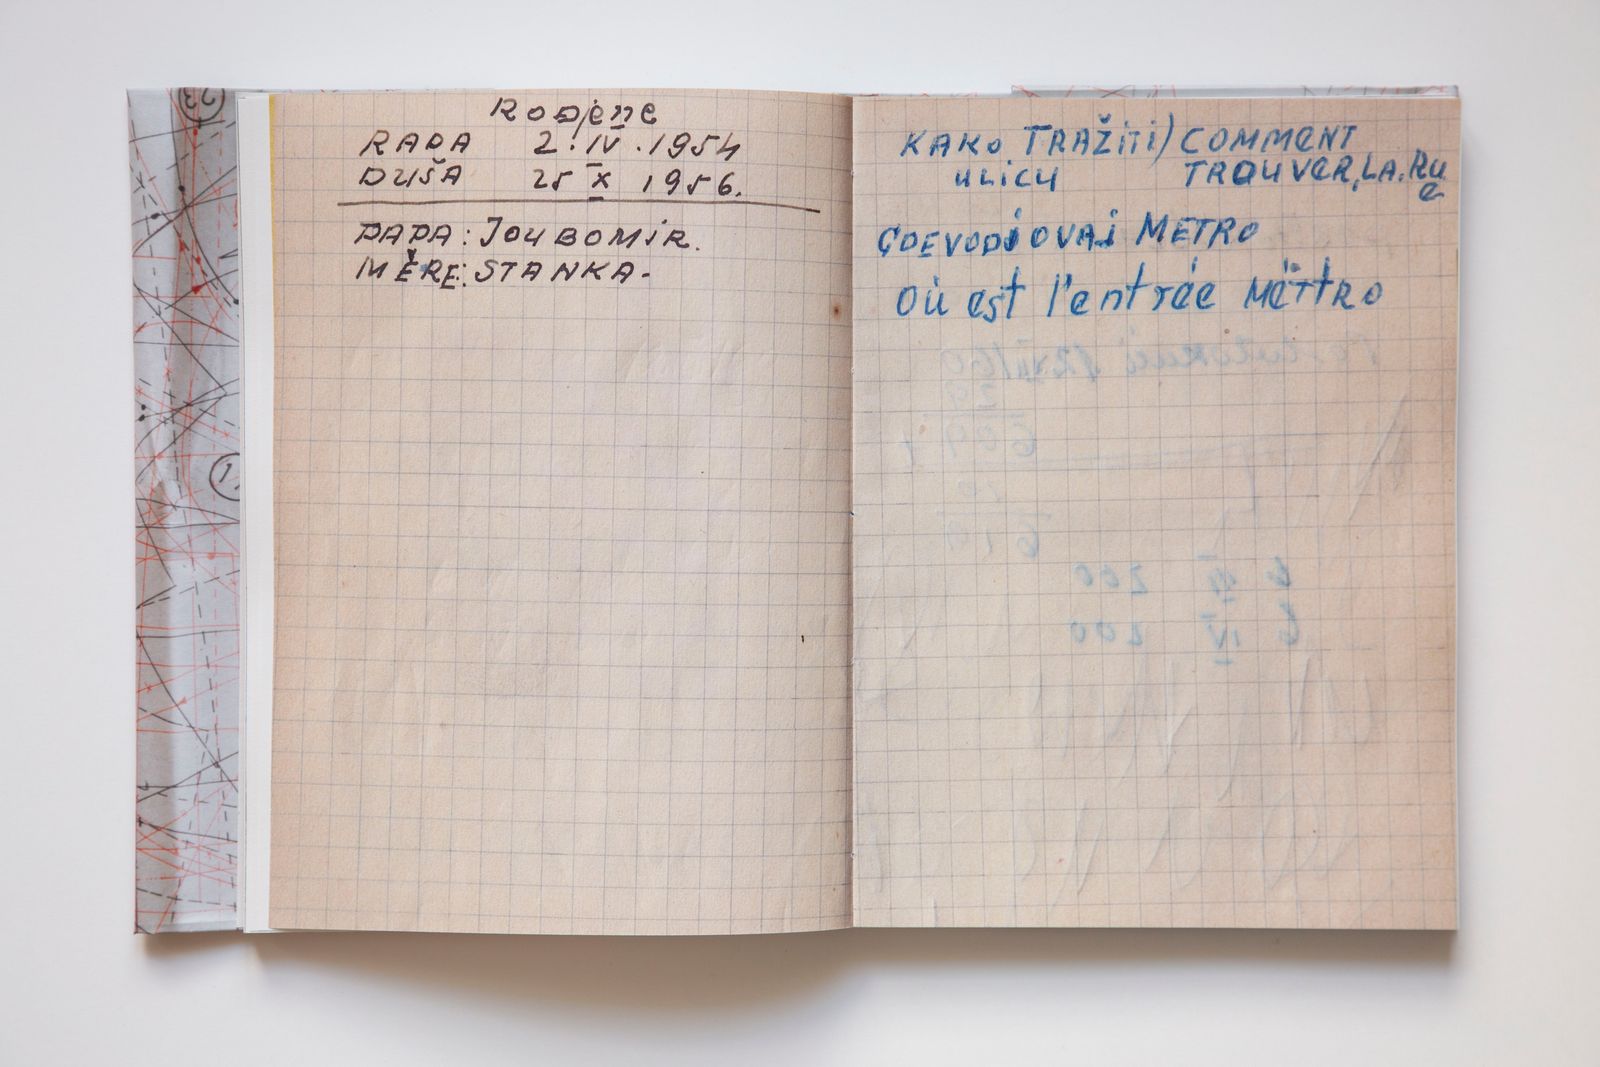 Rodjene
RADA 2.IV.1954
DUŠA 25 X 1956.
PAPA: JOUBOMIR.
MÈRE: STANKA-
KAKO TRAŽITI) COMMENT
ULICU TROUVER, LA. RUe
GDEVODI OVAJ METRO
OÙ est l'entrée MËTTRO
200
200